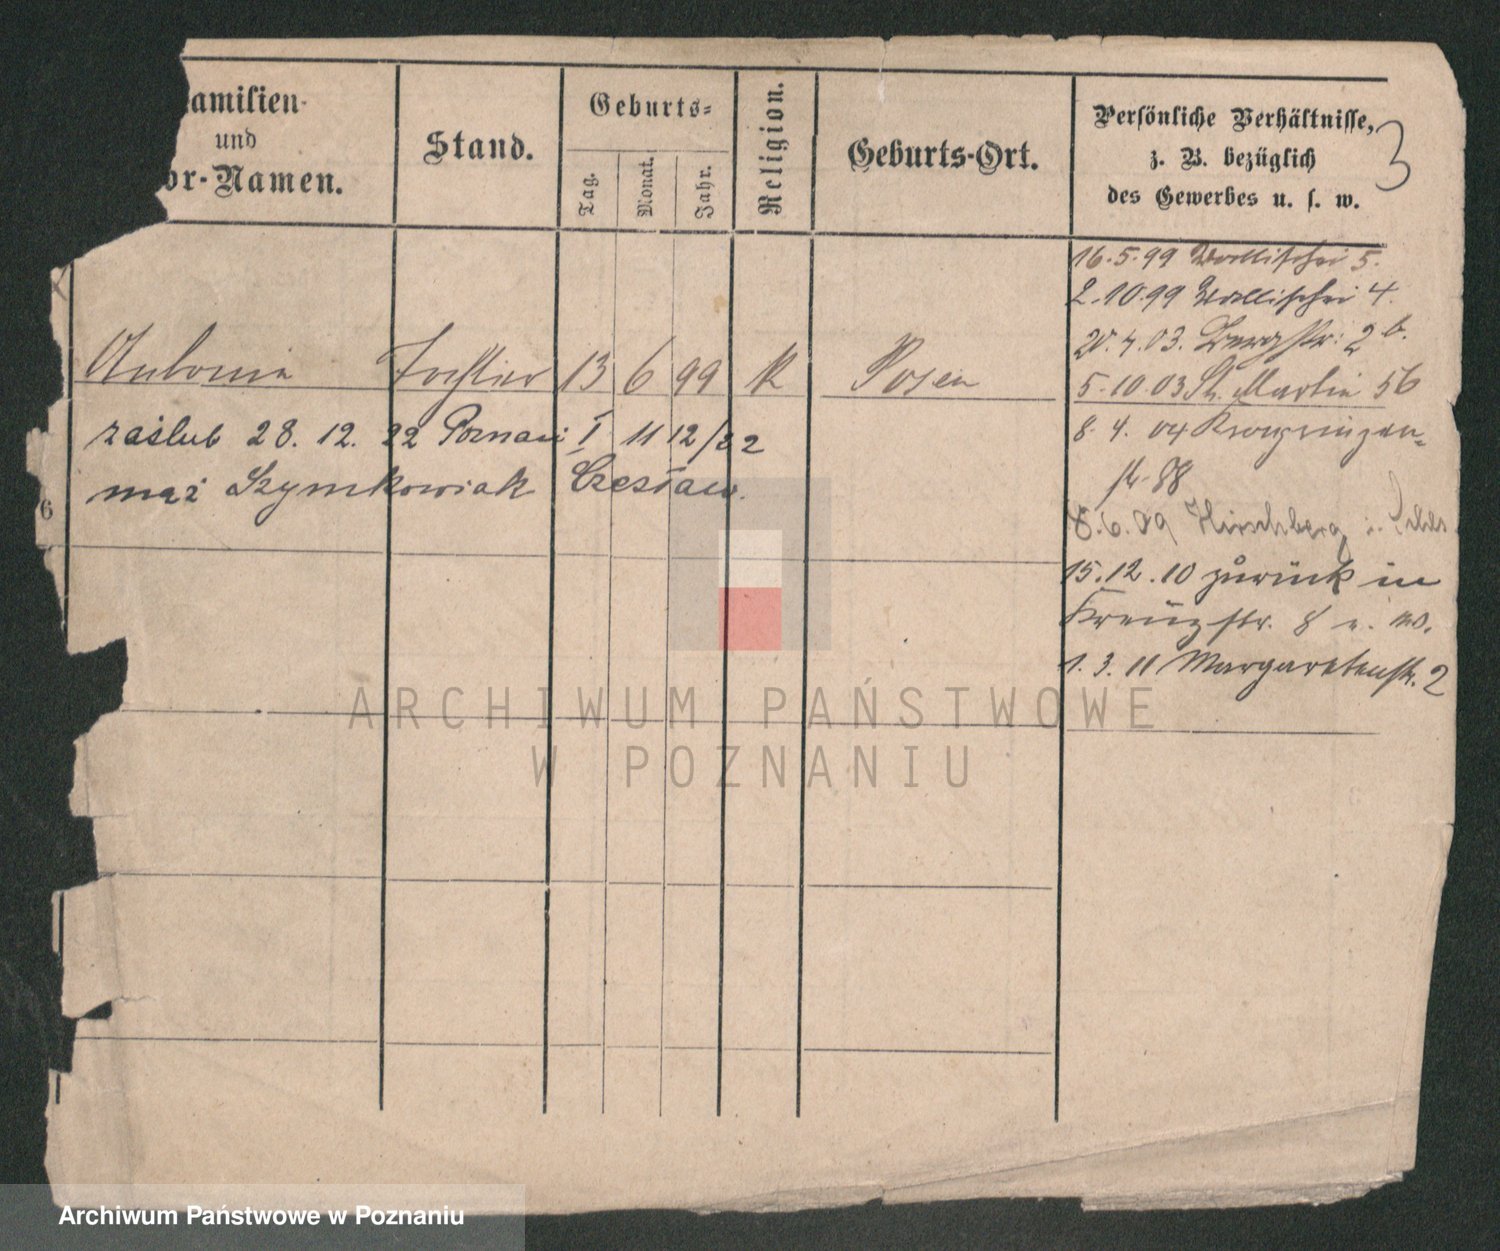 amilien-
und
or-Namen.
Stand.
Geburts-
Tag.
Monat.
Jahr.
Religion.
Geburts-Ort.
Persönliche Verhältnisse,
z. B. bezüglich
des Gewerbes u. s. w.
3
16.5.99 Wallischei 5.
2.10.99 Wallischei 4.
20.4.03. Bergstr: 2b.
Antonie Tochter 13 6 99 K Posen
5.10.03 St. Martin 56
zaślub 28. 12. 22 Poznań I 11 12/22
8. 4. 04
mąż Szymkowiak Czesław.
6
8.6.09 Hirschberg i.
15.12.10 zurück in
Kreuzstr. 8
1. 3. 11 Margaretenstr. 2
ARCHIWUM PAŃSTWOWE
W POZNANIU
Archiwum Państwowe w Poznaniu